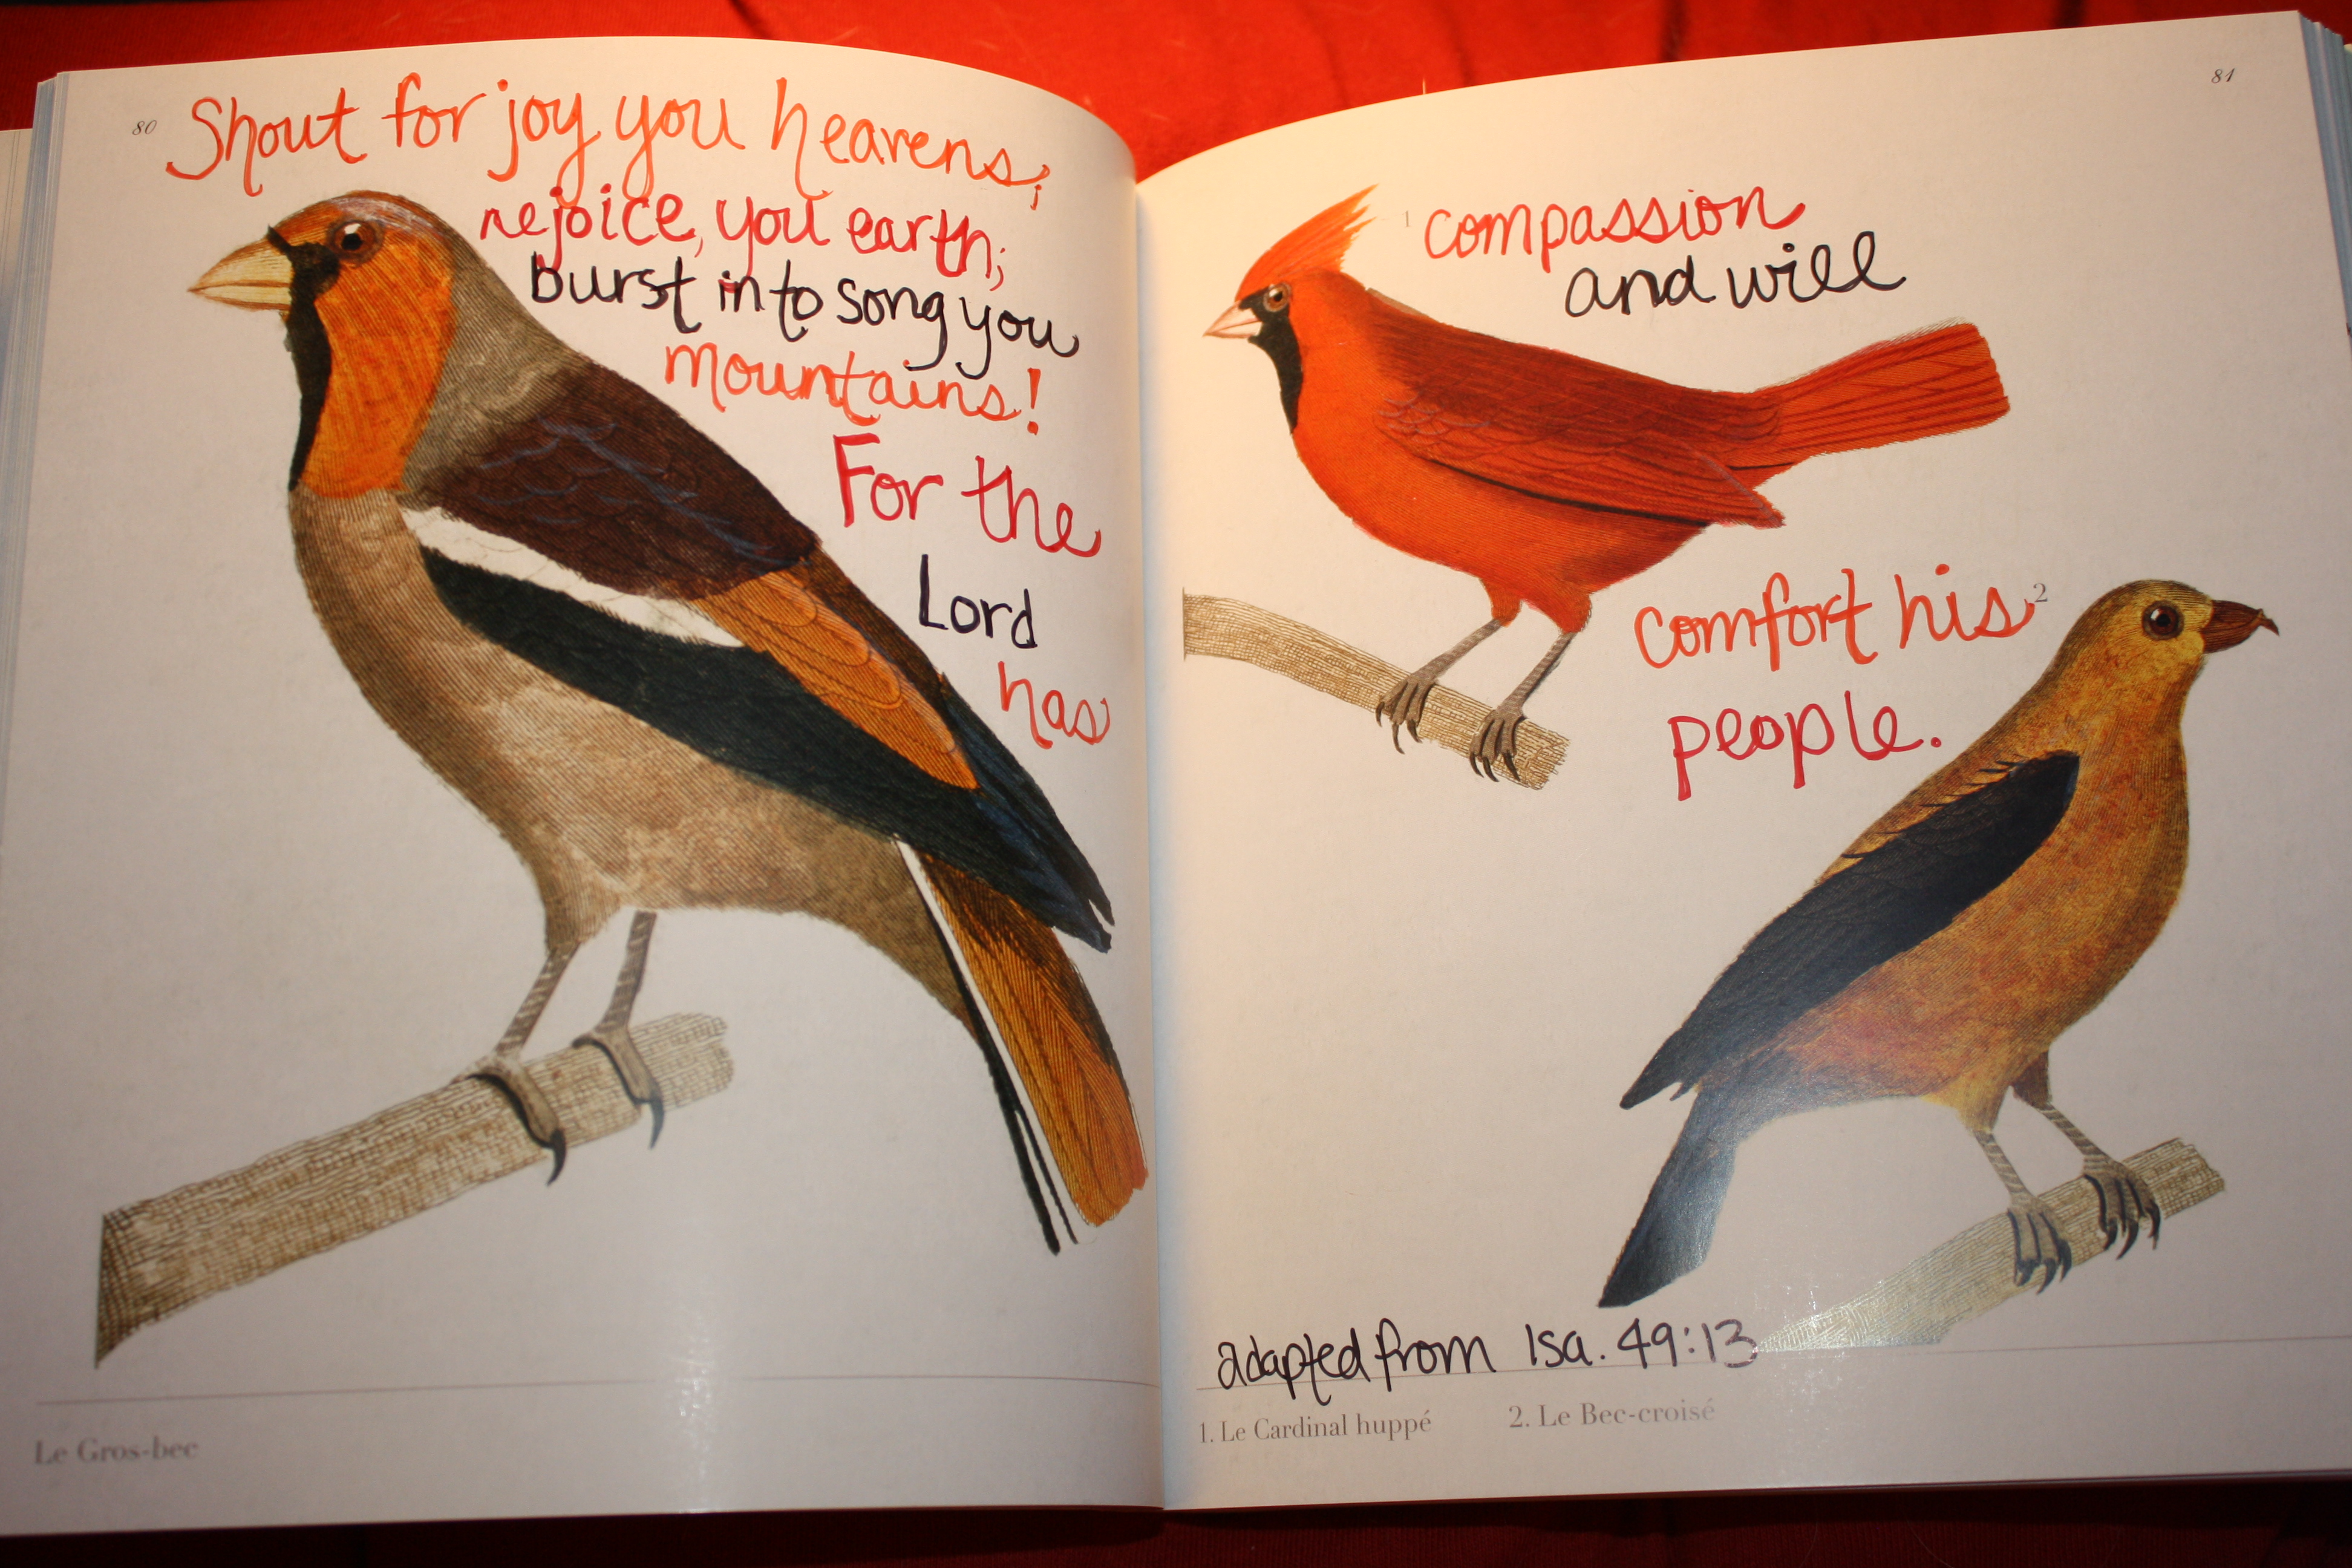 80
Shout for joy you heavens;
rejoice, you earth;
burst into song you
mountains!
For the
Lord
has
Le Gros-bec
81
1 compassion
and will
comfort his 2
people.
adapted from Isa. 49:13
1. Le Cardinal huppé 2. Le Bec-croisé